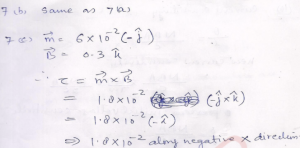 7(b) Same as 7(a)
7(c) m⃗ = 6×10⁻² (-ĵ)
B⃗ = 0.3 k̂
∴ τ = m⃗ × B⃗
= 1.8×10⁻² (-ĵ×k̂)
= 1.8×10⁻² (-î)
⇒ 1.8×10⁻² along negative x direction